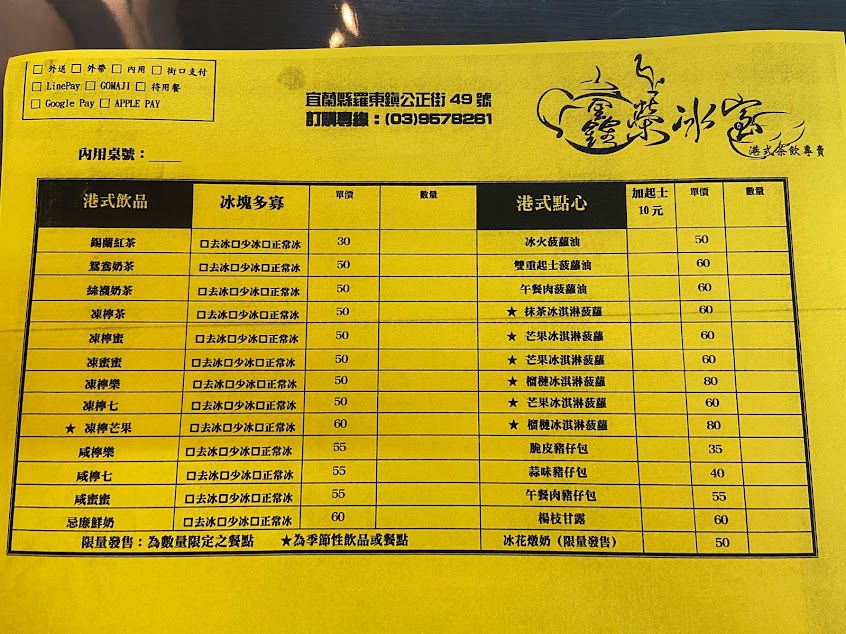 □ 外送 □ 外帶 □ 內用 □ 街口支付
□ LinePay □ GOMAJI □ 待用餐
□ Google Pay □ APPLE PAY
宜蘭縣羅東鎮公正街 49 號
訂購專線：(03)9578261
鑫榮冰室
港式茶飲專賣
內用桌號：____
港式飲品 冰塊多寡 單價 數量 港式點心 加起士 10 元 單價 數量
錫蘭紅茶 □去冰□少冰□正常冰 30 冰火菠蘿油 50
鴛鴦奶茶 □去冰□少冰□正常冰 50 雙重起士菠蘿油 60
絲襪奶茶 □去冰□少冰□正常冰 50 午餐肉菠蘿油 60
凍檸茶 □去冰□少冰□正常冰 50 ★ 抹茶冰淇淋菠蘿 60
凍檸蜜 □去冰□少冰□正常冰 50 ★ 芒果冰淇淋菠蘿 60
凍蜜蜜 □去冰□少冰□正常冰 50 ★ 芒果冰淇淋菠蘿 60
凍檸樂 □去冰□少冰□正常冰 50 ★ 榴槤冰淇淋菠蘿 80
凍檸七 □去冰□少冰□正常冰 50 ★ 芒果冰淇淋菠蘿 60
★ 凍檸芒果 □去冰□少冰□正常冰 60 ★ 榴槤冰淇淋菠蘿 80
咸檸樂 □去冰□少冰□正常冰 55 脆皮豬仔包 35
咸檸七 □去冰□少冰□正常冰 55 蒜味豬仔包 40
咸蜜蜜 □去冰□少冰□正常冰 55 午餐肉豬仔包 55
忌廉鮮奶 □去冰□少冰□正常冰 60 楊枝甘露 60
限量發售：為數量限定之餐點 ★為季節性飲品或餐點 冰花燉奶（限量發售） 50